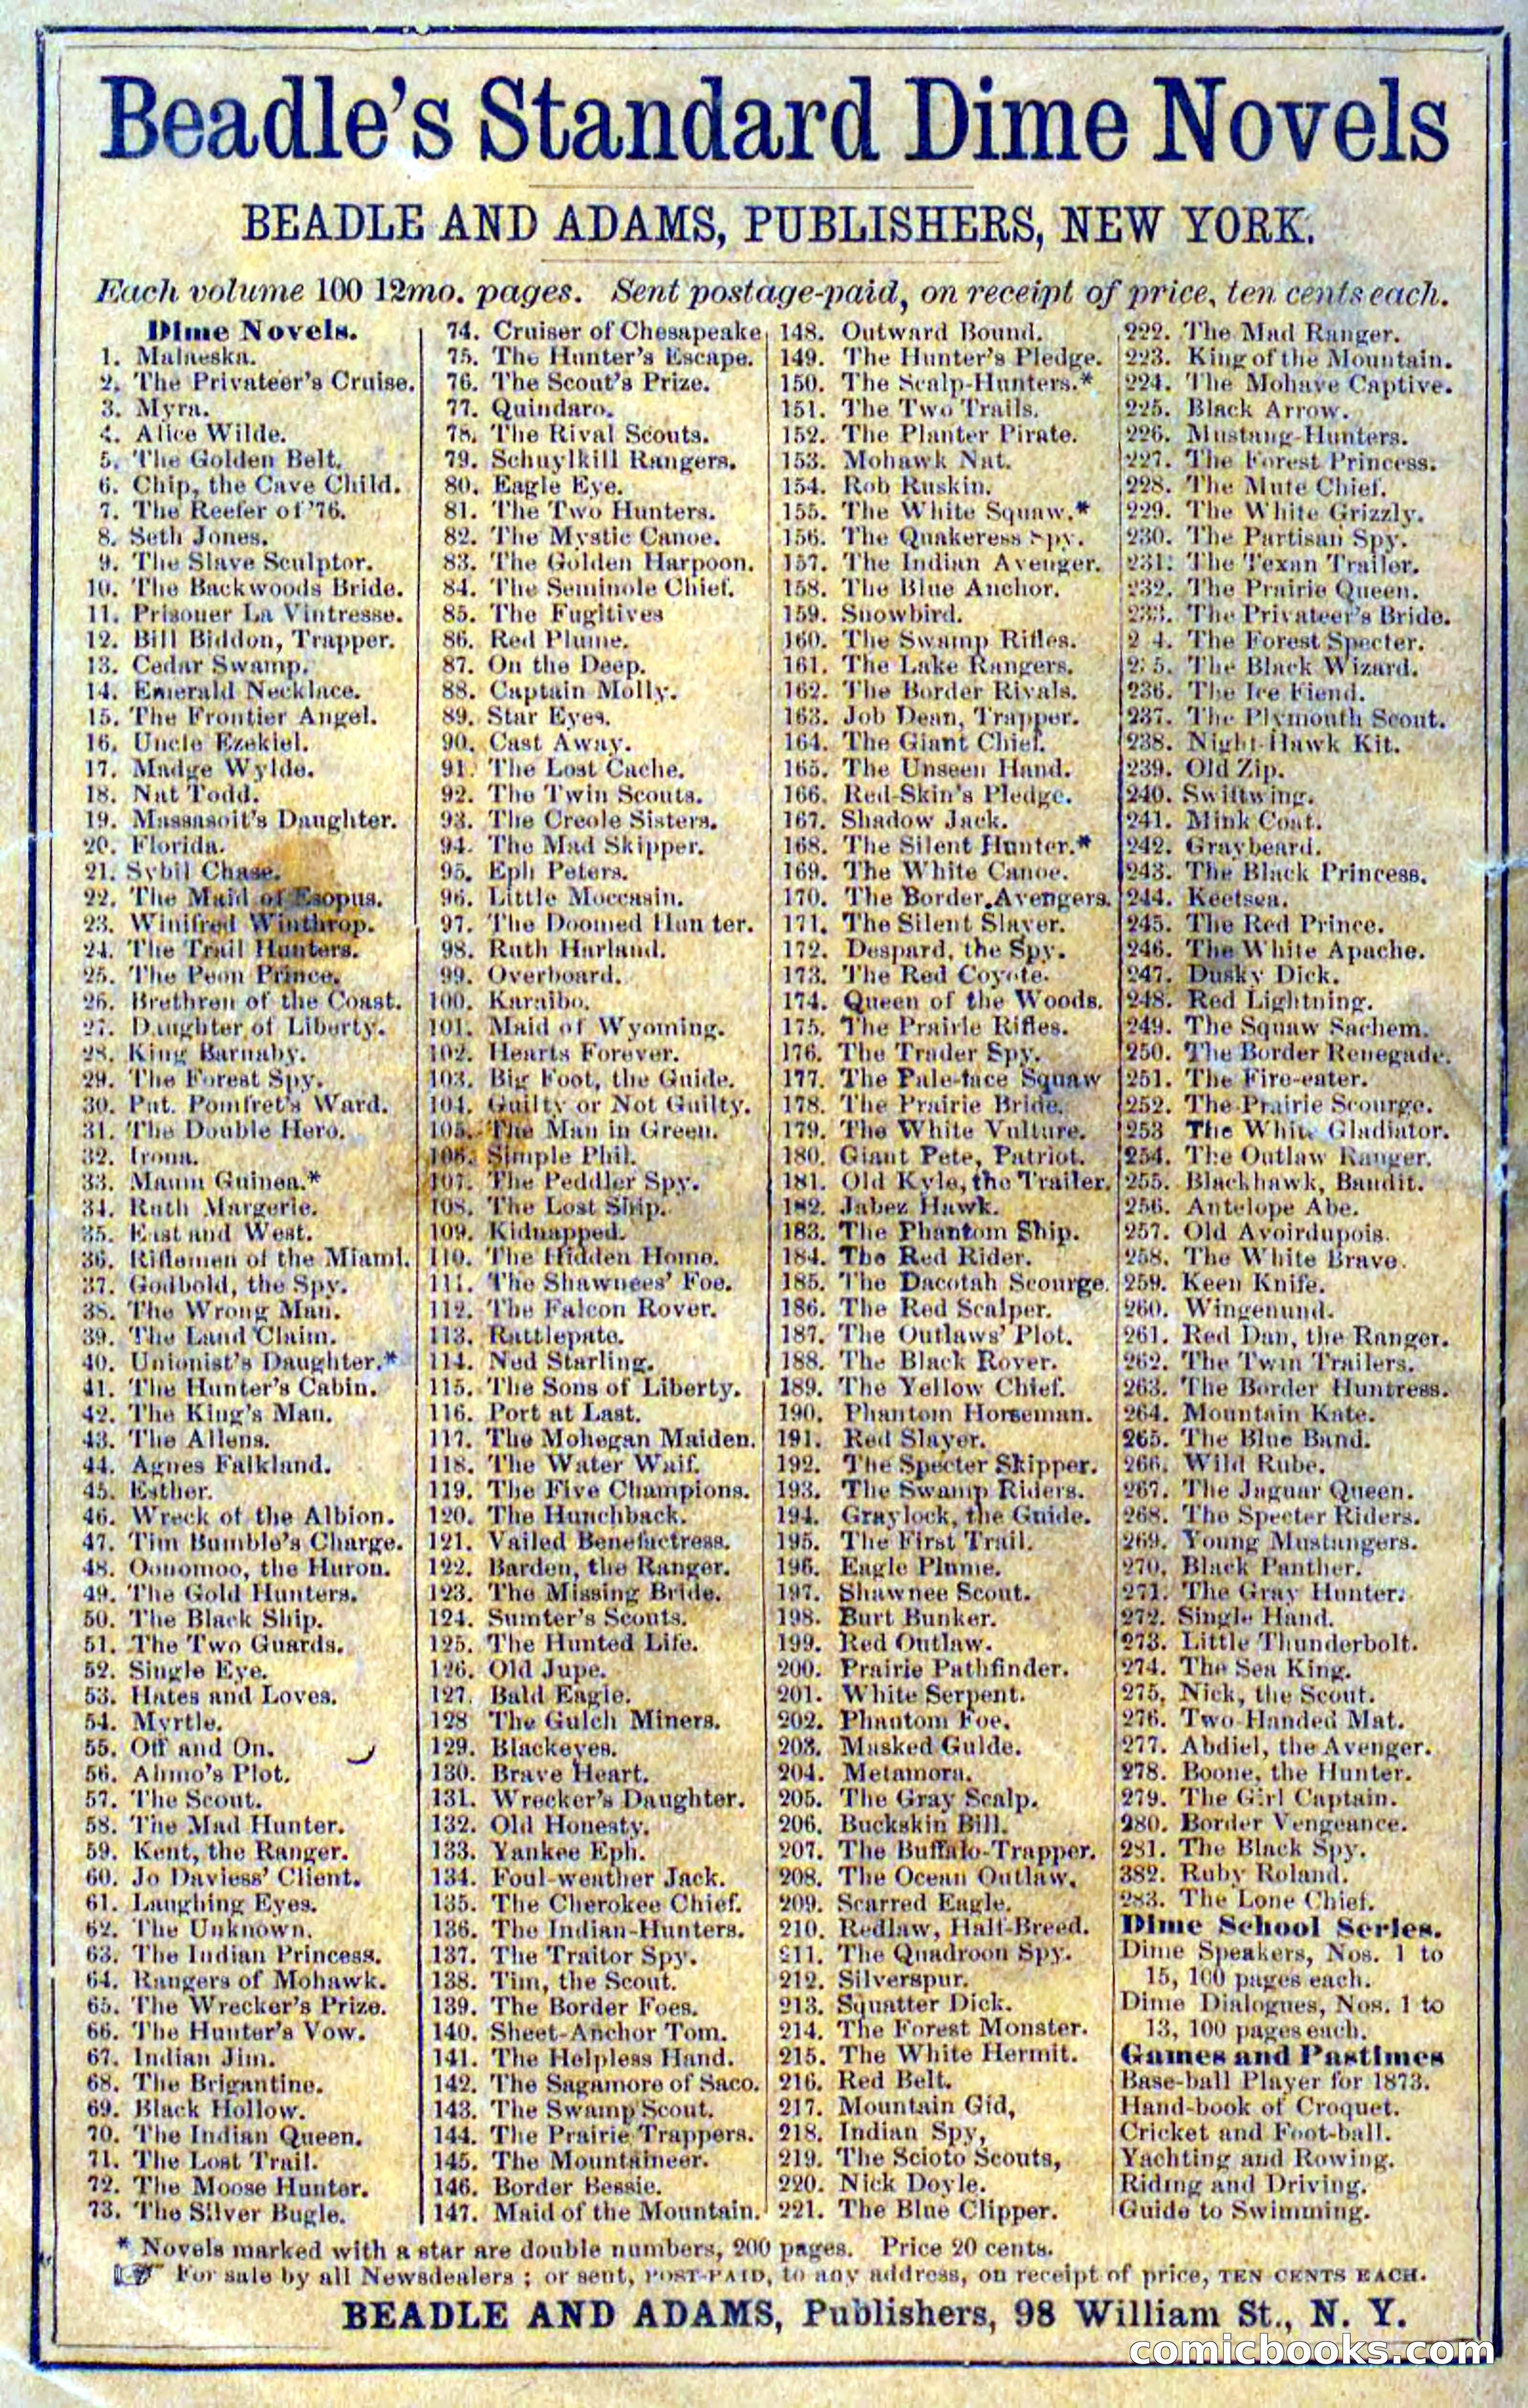 Beadle's Standard Dime Novels
BEADLE AND ADAMS, PUBLISHERS, NEW YORK.
Each volume 100 12mo. pages. Sent postage-paid, on receipt of price, ten cents each.
Dime Novels.
1. Malaeska.
2. The Privateer's Cruise.
3. Myra.
4. Alice Wilde.
5. The Golden Belt.
6. Chip, the Cave Child.
7. The Reefer of '76.
8. Seth Jones.
9. The Slave Sculptor.
10. The Backwoods Bride.
11. Prisoner La Vintresse.
12. Bill Biddon, Trapper.
13. Cedar Swamp.
14. Emerald Necklace.
15. The Frontier Angel.
16. Uncle Ezekiel.
17. Madge Wylde.
18. Nat Todd.
19. Massasoit's Daughter.
20. Florida.
21. Sybil Chase.
22. The Maid of Esopus.
23. Winifred Winthrop.
24. The Trail Hunters.
25. The Peon Prince.
26. Brethren of the Coast.
27. Daughter of Liberty.
28. King Barnaby.
29. The Forest Spy.
30. Put. Pomfret's Ward.
31. The Double Hero.
32. Irona.
33. Maum Guinea.*
34. Ruth Margerie.
35. East and West.
36. Riflemen of the Miami.
37. Godbold, the Spy.
38. The Wrong Man.
39. The Land Claim.
40. Unionist's Daughter.*
41. The Hunter's Cabin.
42. The King's Man.
43. The Allens.
44. Agnes Falkland.
45. Esther.
46. Wreck of the Albion.
47. Tim Bumble's Charge.
48. Oonomoo, the Huron.
49. The Gold Hunters.
50. The Black Ship.
51. The Two Guards.
52. Single Eye.
53. Hates and Loves.
54. Myrtle.
55. Off and On.
56. Ahmo's Plot.
57. The Scout.
58. The Mad Hunter.
59. Kent, the Ranger.
60. Jo Daviess' Client.
61. Laughing Eyes.
62. The Unknown.
63. The Indian Princess.
64. Rangers of Mohawk.
65. The Wrecker's Prize.
66. The Hunter's Vow.
67. Indian Jim.
68. The Brigantine.
69. Black Hollow.
70. The Indian Queen.
71. The Lost Trail.
72. The Moose Hunter.
73. The Silver Bugle.
74. Cruiser of Chesapeake
75. The Hunter's Escape.
76. The Scout's Prize.
77. Quindaro.
78. The Rival Scouts.
79. Schuylkill Rangers.
80. Eagle Eye.
81. The Two Hunters.
82. The Mystic Canoe.
83. The Golden Harpoon.
84. The Seminole Chief.
85. The Fugitives
86. Red Plume.
87. On the Deep.
88. Captain Molly.
89. Star Eyes.
90. Cast Away.
91. The Lost Cache.
92. The Twin Scouts.
93. The Creole Sisters.
94. The Mad Skipper.
95. Eph Peters.
96. Little Moccasin.
97. The Doomed Hunter.
98. Ruth Harland.
99. Overboard.
100. Karaibo.
101. Maid of Wyoming.
102. Hearts Forever.
103. Big Foot, the Guide.
104. Guilty or Not Guilty.
105. The Man in Green.
106. Simple Phil.
107. The Peddler Spy.
108. The Lost Ship.
109. Kidnapped.
110. The Hidden Home.
111. The Shawnees' Foe.
112. The Falcon Rover.
113. Rattlepate.
114. Ned Starling.
115. The Sons of Liberty.
116. Port at Last.
117. The Mohegan Maiden.
118. The Water Waif.
119. The Five Champions.
120. The Hunchback.
121. Vailed Benefactress.
122. Barden, the Ranger.
123. The Missing Bride.
124. Sumter's Scouts.
125. The Hunted Life.
126. Old Jupe.
127. Bald Eagle.
128 The Gulch Miners.
129. Blackeyes.
130. Brave Heart.
131. Wrecker's Daughter.
132. Old Honesty.
133. Yankee Eph.
134. Foul-weather Jack.
135. The Cherokee Chief.
136. The Indian-Hunters.
137. The Traitor Spy.
138. Tim, the Scout.
139. The Border Foes.
140. Sheet-Anchor Tom.
141. The Helpless Hand.
142. The Sagamore of Saco.
143. The Swamp Scout.
144. The Prairie Trappers.
145. The Mountaineer.
146. Border Bessie.
147. Maid of the Mountain.
148. Outward Bound.
149. The Hunter's Pledge.
150. The Scalp-Hunters.*
151. The Two Trails.
152. The Planter Pirate.
153. Mohawk Nat.
154. Rob Ruskin.
155. The White Squaw.*
156. The Quakeress Spy.
157. The Indian Avenger.
158. The Blue Anchor.
159. Snowbird.
160. The Swamp Rifles.
161. The Lake Rangers.
162. The Border Rivals.
163. Job Dean, Trapper.
164. The Giant Chief.
165. The Unseen Hand.
166. Red-Skin's Pledge.
167. Shadow Jack.
168. The Silent Hunter.*
169. The White Canoe.
170. The Border Avengers.
171. The Silent Slayer.
172. Despard, the Spy.
173. The Red Coyote.
174. Queen of the Woods.
175. The Prairie Rifles.
176. The Trader Spy.
177. The Pale-face Squaw
178. The Prairie Bride.
179. The White Vulture.
180. Giant Pete, Patriot.
181. Old Kyle, the Trailer.
182. Jabez Hawk.
183. The Phantom Ship.
184. The Red Rider.
185. The Dacotah Scourge.
186. The Red Scalper.
187. The Outlaws' Plot.
188. The Black Rover.
189. The Yellow Chief.
190. Phantom Horseman.
191. Red Slayer.
192. The Specter Skipper.
193. The Swamp Riders.
194. Graylock, the Guide.
195. The First Trail.
196. Eagle Plume.
197. Shawnee Scout.
198. Burt Bunker.
199. Red Outlaw.
200. Prairie Pathfinder.
201. White Serpent.
202. Phantom Foe.
203. Masked Guide.
204. Metamora.
205. The Gray Scalp.
206. Buckskin Bill.
207. The Buffalo-Trapper.
208. The Ocean Outlaw.
209. Scarred Eagle.
210. Redlaw, Half-Breed.
211. The Quadroon Spy.
212. Silverspur.
213. Squatter Dick.
214. The Forest Monster.
215. The White Hermit.
216. Red Belt.
217. Mountain Gid,
218. Indian Spy,
219. The Scioto Scouts,
220. Nick Doyle.
221. The Blue Clipper.
222. The Mad Ranger.
223. King of the Mountain.
224. The Mohave Captive.
225. Black Arrow.
226. Mustang-Hunters.
227. The Forest Princess.
228. The Mute Chief.
229. The White Grizzly.
230. The Partisan Spy.
231. The Texan Trailer.
232. The Prairie Queen.
233. The Privateer's Bride.
2 4. The Forest Specter.
235. The Black Wizard.
236. The Ice Fiend.
237. The Plymouth Scout.
238. Night-Hawk Kit.
239. Old Zip.
240. Swiftwing.
241. Mink Coat.
242. Graybeard.
243. The Black Princess.
244. Keetsea.
245. The Red Prince.
246. The White Apache.
247. Dusky Dick.
248. Red Lightning.
249. The Squaw Sachem.
250. The Border Renegade.
251. The Fire-eater.
252. The Prairie Scourge.
253 The White Gladiator.
254. The Outlaw Ranger.
255. Blackhawk, Bandit.
256. Antelope Abe.
257. Old Avoirdupois.
258. The White Brave.
259. Keen Knife.
260. Wingenund.
261. Red Dan, the Ranger.
262. The Twin Trailers.
263. The Border Huntress.
264. Mountain Kate.
265. The Blue Band.
266. Wild Rube.
267. The Jaguar Queen.
268. The Specter Riders.
269. Young Mustangers.
270. Black Panther.
271. The Gray Hunter.
272. Single Hand.
273. Little Thunderbolt.
274. The Sea King.
275. Nick, the Scout.
276. Two-Handed Mat.
277. Abdiel, the Avenger.
278. Boone, the Hunter.
279. The Girl Captain.
280. Border Vengeance.
281. The Black Spy.
382. Ruby Roland.
283. The Lone Chief.
Dime School Series.
Dime Speakers, Nos. 1 to
15, 100 pages each.
Dime Dialogues, Nos. 1 to
13, 100 pages each.
Games and Pastimes
Base-ball Player for 1873.
Hand-book of Croquet.
Cricket and Foot-ball.
Yachting and Rowing.
Riding and Driving.
Guide to Swimming.
* Novels marked with a star are double numbers, 200 pages. Price 20 cents.
☞ For sale by all Newsdealers ; or sent, POST-PAID, to any address, on receipt of price, TEN CENTS EACH.
BEADLE AND ADAMS, Publishers, 98 William St., N. Y.
comicbooks.com